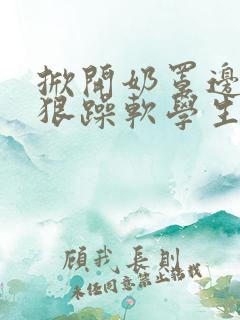 掀開奶罩邊
狠躁軟學生
顧我長則
未經同意禁止搭救